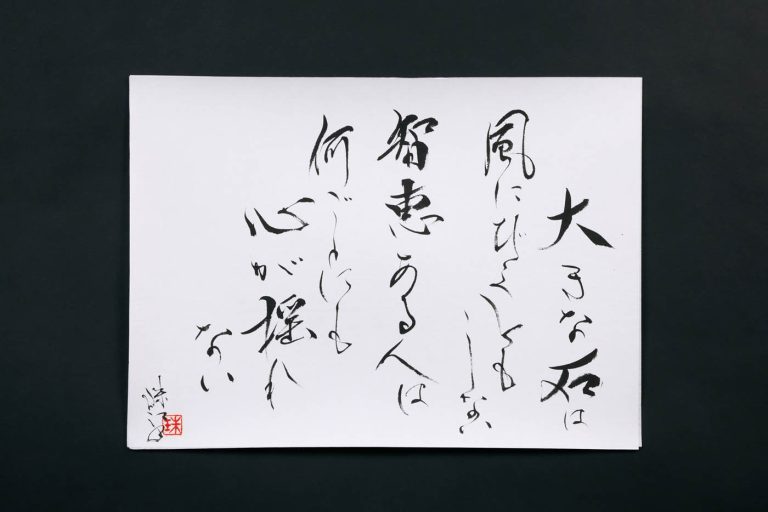 大きな石は
風にびくとも
しない
智恵ある人は
何ごとにも
心が揺れ
ない
珠